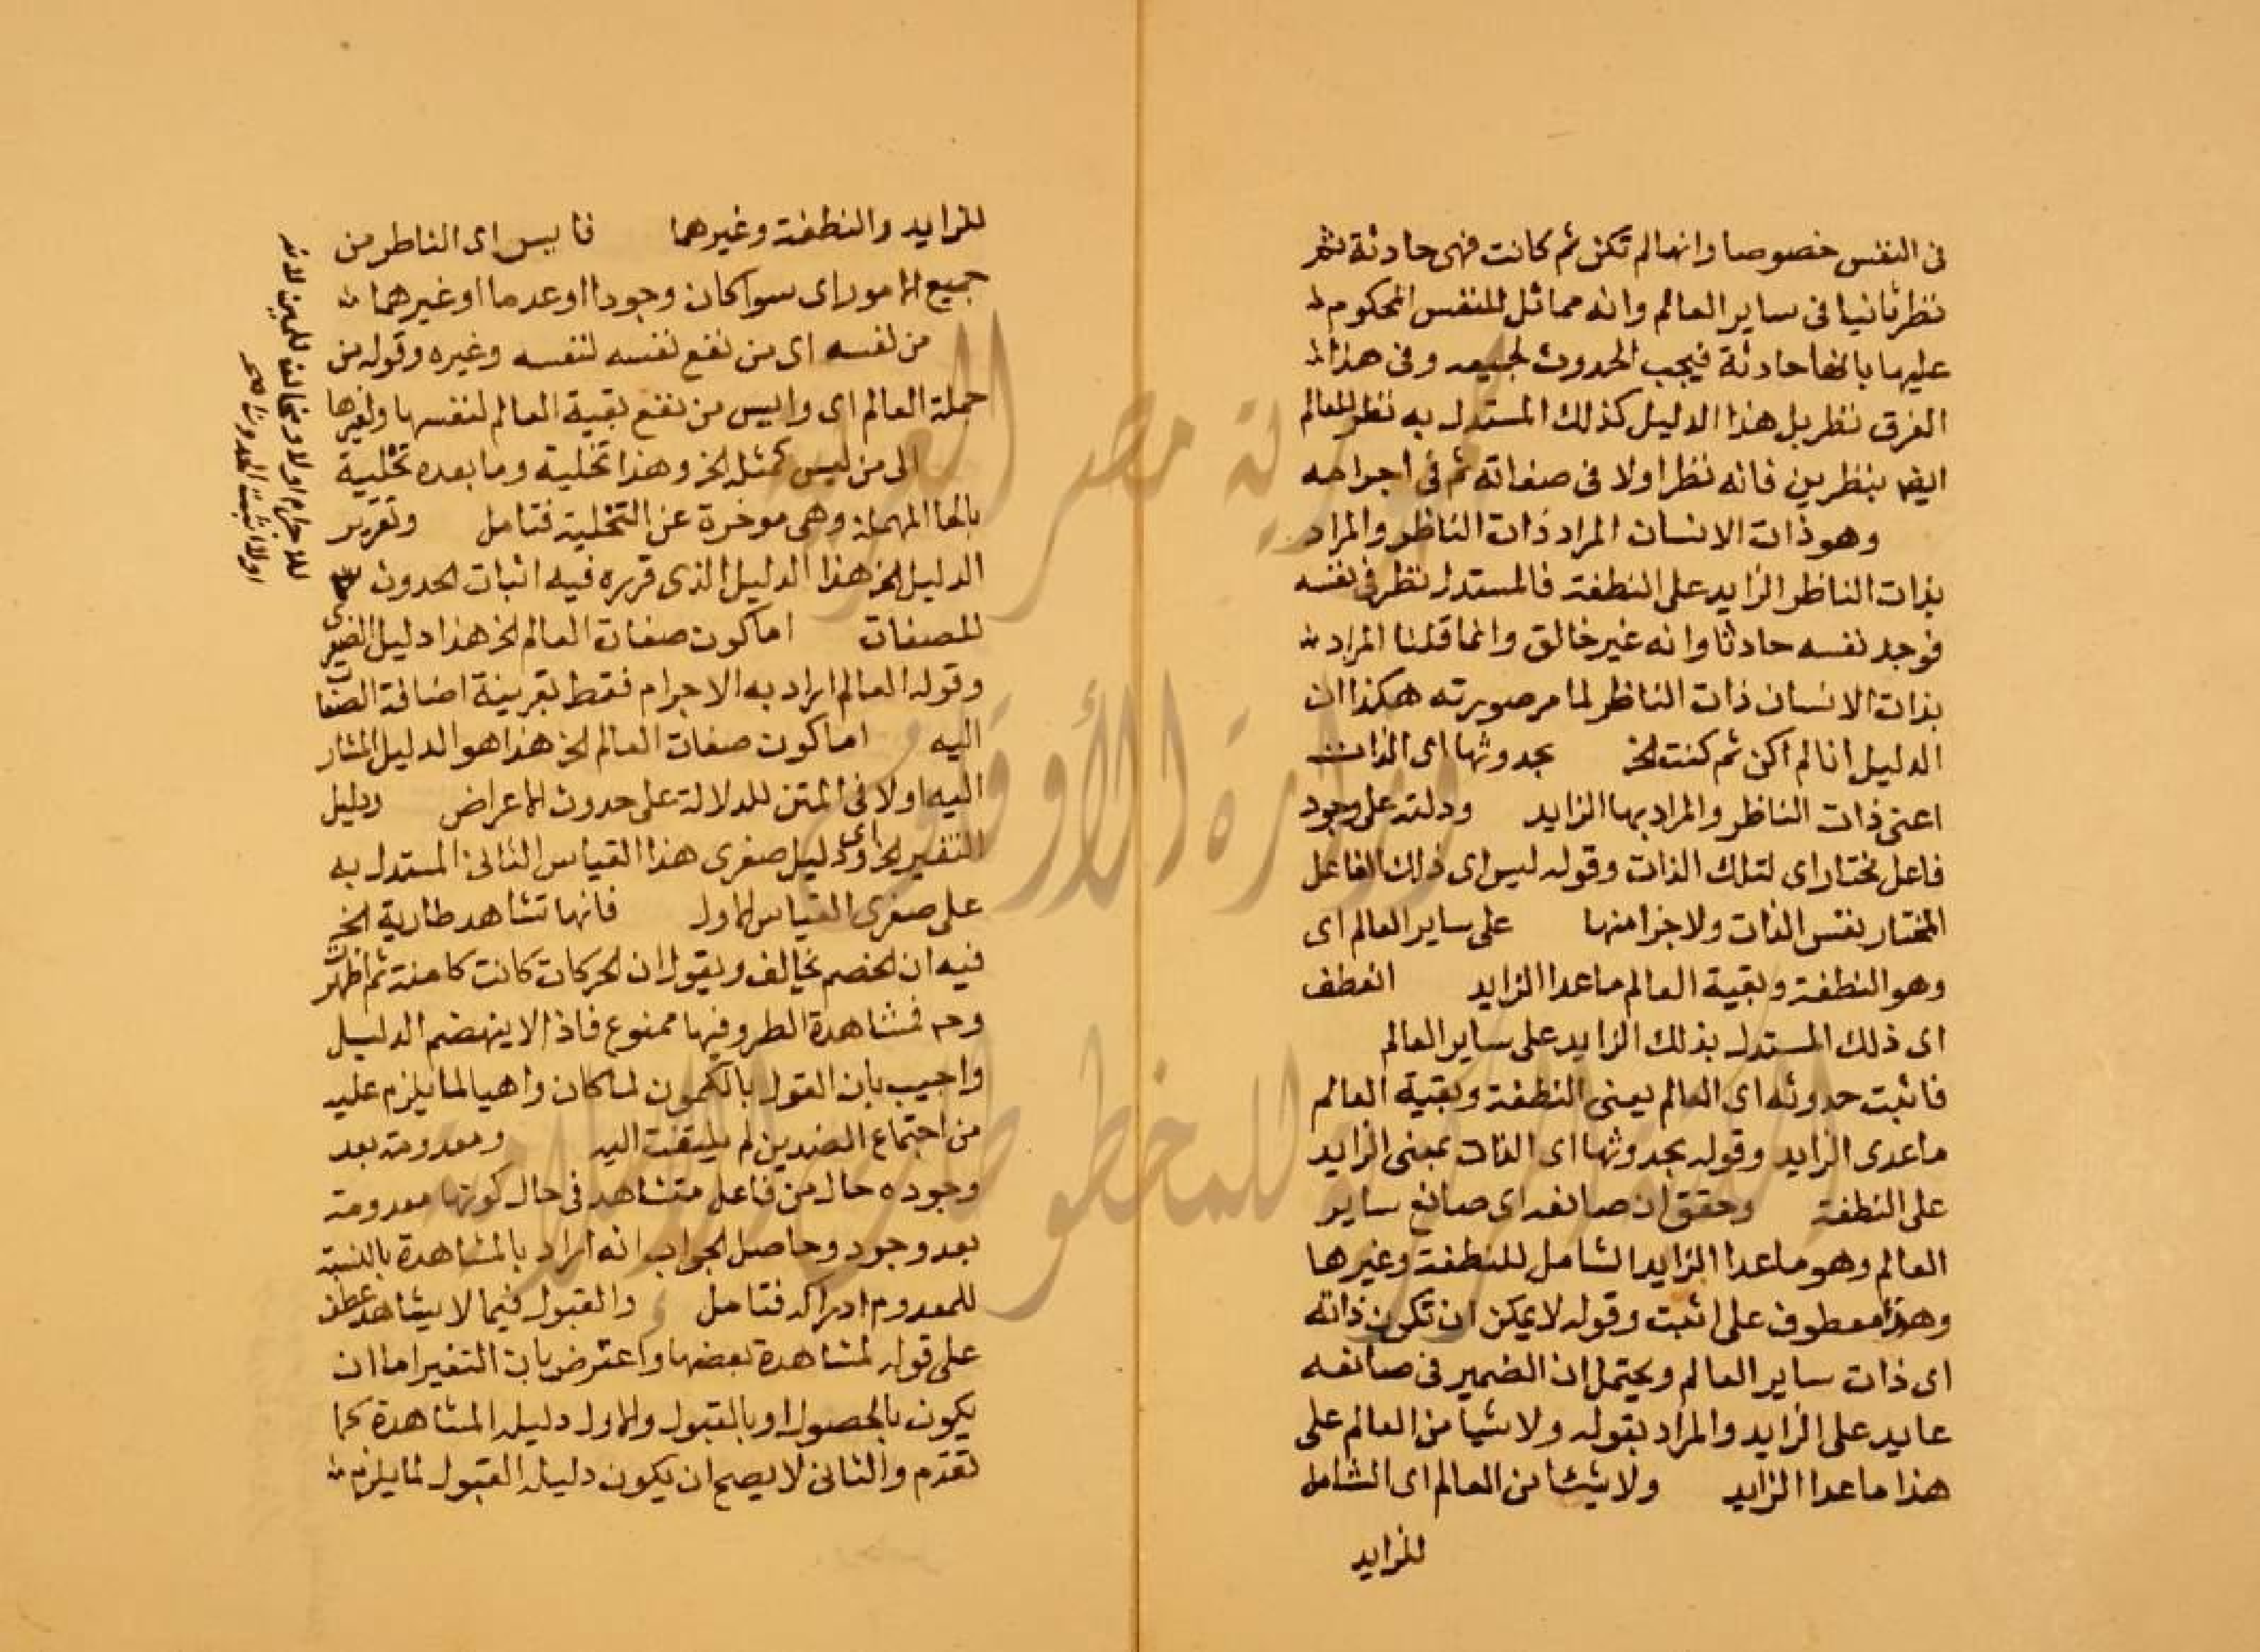 في النفس خصوصا وانها لم تكن ثم كانت فهي حادثة ثم
نظر ثانيا في ساير العالم وانه مماثل للنفس المحكوم
عليها بانها حادثة فيجب الحدوث لجميعه وفي هذا
الفرق نظر بل هذا الدليل كذلك المستدل به نظر للعالم
ايضا بنظرين فانه نظر اولا في صفاته ثم في اجرامه
وهو ذات الانسان المراد ذات الناظر والمراد
بذات الناظر الزايد على النطفة فالمستدل نظر في نفسه
فوجد نفسه حادثا وانه غير خالق وانما قلنا المراد
بذات الانسان ذات الناظر لما مر صورته هكذا ان
الدليل انا لم اكن ثم كنت الخ بحدوثها اى الذات
اعنى ذات الناظر والمراد بها الزايد ودلته على وجود
فاعل مختار اى لتلك الذات وقوله ليس اى ذلك الفاعل
المختار نفس الذات ولا جزا منها على ساير العالم اى
وهو النطفة وبقية العالم ما عدا الزايد انعطف
اى ذلك المستدل بذلك الزايد على ساير العالم
فاثبت حدوثه اى العالم يعنى النطفة وبقية العالم
ما عدى الزايد وقوله بحدوثها اى الذات بمعنى الزايد
على النطفة وحقق ان صانعه اى صانع ساير
العالم وهو ما عدا الزايد الشامل للنطفة وغيرها
وهذا معطوف على اثبت وقوله لا يمكن ان تكون ذاته
اى ذات ساير العالم ويحتمل ان الضمير في صانعه
عايد على الزايد والمراد بقوله ولا شيا من العالم على
هذا ما عدا الزايد ولا شيئا من العالم اى الشامل
للزايد
للزايد والنطفة وغيرهما فايس اى الناظر من
جميع الامور اى سوا كان وجودا او عدما او غيرهما
من نفسه اى من نفع نفسه لنفسه وغيره وقوله من
جملة العالم اى وايس من نفع بقية العالم لنفسها ولغيرها
الى من ليس كمثله الخ وهذا تخلية وما بعده تحلية
بالحا المهملة وهي موخرة عن التخلية فتامل وتقرير
الدليل الخ هذا الدليل الذى قرره فيه اثبات الحدوث
للصفات اما كون صفات العالم الخ هذا دليل الصغرى
وقوله العالم اراد به الاجرام فقط بقرينة اضافة الصفات
اليه اما كون صفات العالم الخ هذا هو الدليل المشار
اليه اولا في المتن للدلالة على حدوث الاعراض ودليل
التغيير الخ اى ودليل صغرى هذا القياس الثاني المستدل به
على صغرى القياس الاول فانها تشاهد طارية الخ
فيه ان الخصم يخالف ويقول ان الحركات كانت كامنة ثم ظهرت
وح فمشاهدة الطرو فيها ممنوع فاذا لا ينهضم الدليل
واجيب بان القول بالكمون لما كان واهيا لما يلزم عليه
من اجتماع الضدين لم يلتفت اليه ومعدومة بعد
وجوده حال من فاعل متشاهد في حال كونها معدومة
بعد وجود وحاصل الجواب انه اراد بالمشاهدة بالنسبة
للمعدوم ادراكه فتامل والقبول فيما لا يشاهد عطف
على قوله لمشاهدة بعضها واعترض بان التغير اما ان
يكون بالحصول او بالقبول والاول دليله المشاهدة كما
تقدم والثاني لا يصح ان يكون دليله القبول لما يلزم
جمهورية مصر العربية
وزارة الأوقاف
المكتبة المركزية للمخطوطات الإسلامية